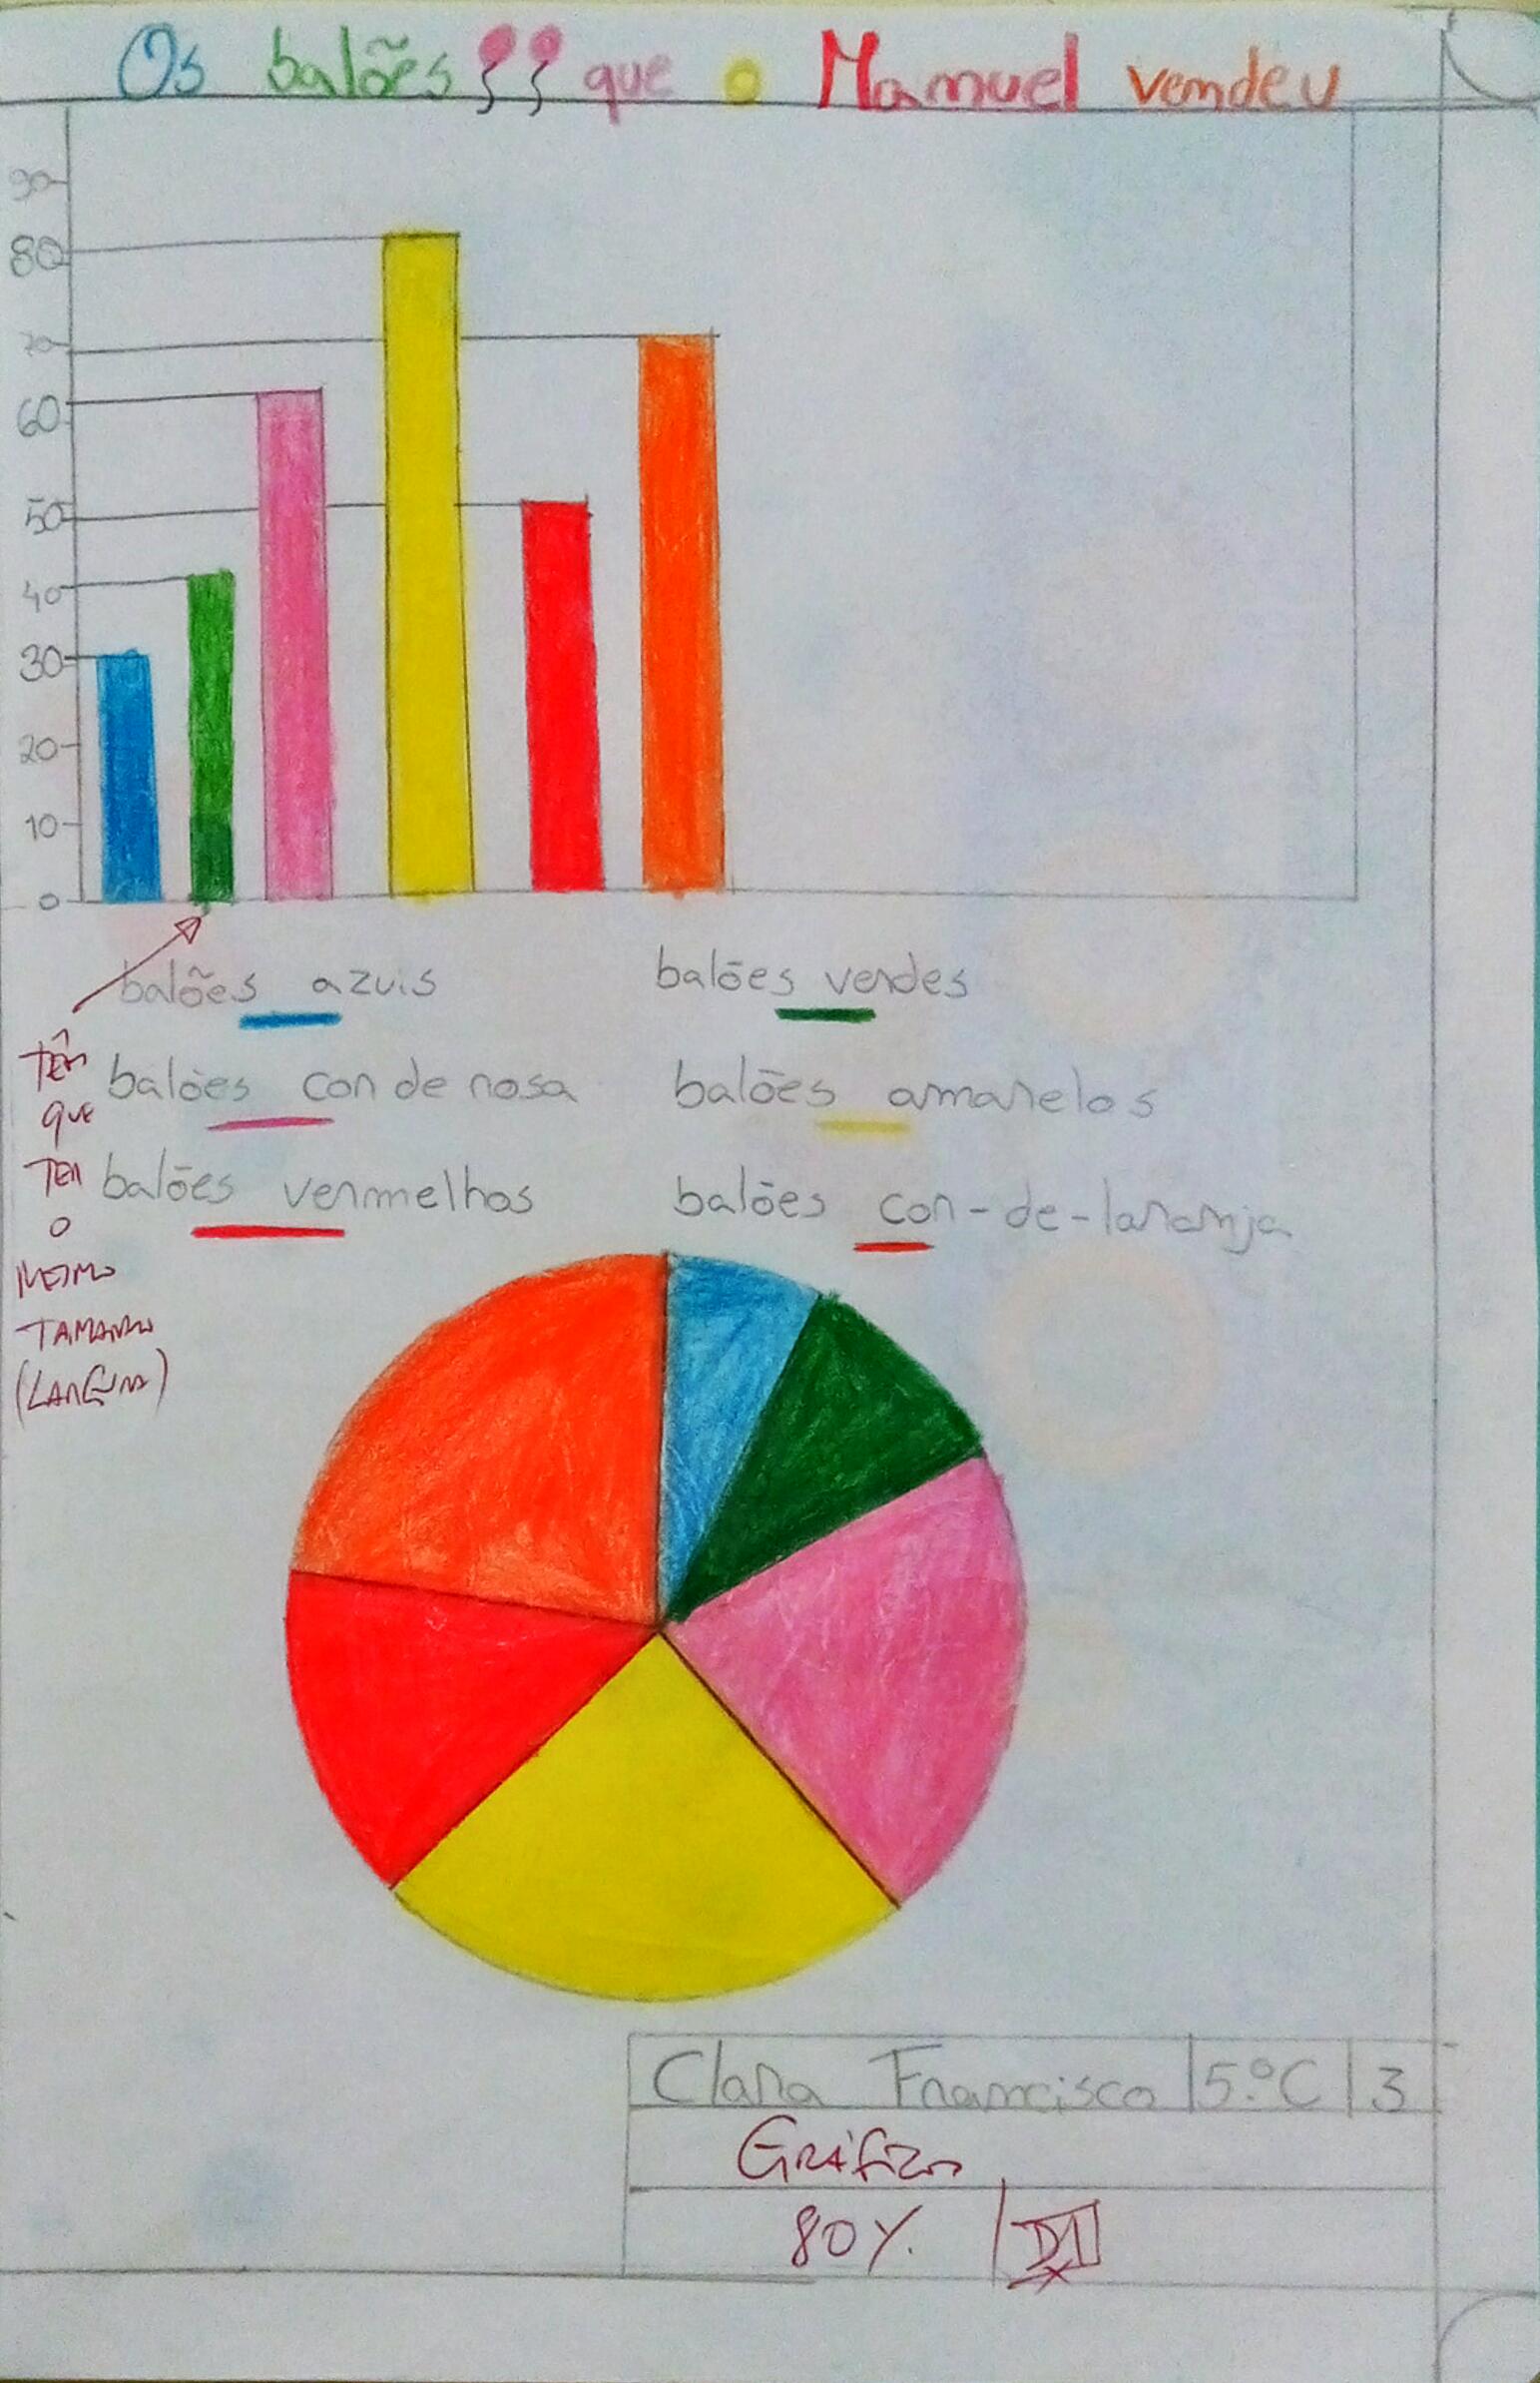 Os balões que o Manuel vendeu
90
80
70
60
50
40
30
20
10
0
balões azuis balões verdes
balões cor de rosa balões amarelos
balões vermelhos balões cor-de-laranja
TÊM
QUE
TER
O
MESMO
TAMANHO
(LARGURA)
Clara Francisco 5.ºC 3
GRÁFICO
80%